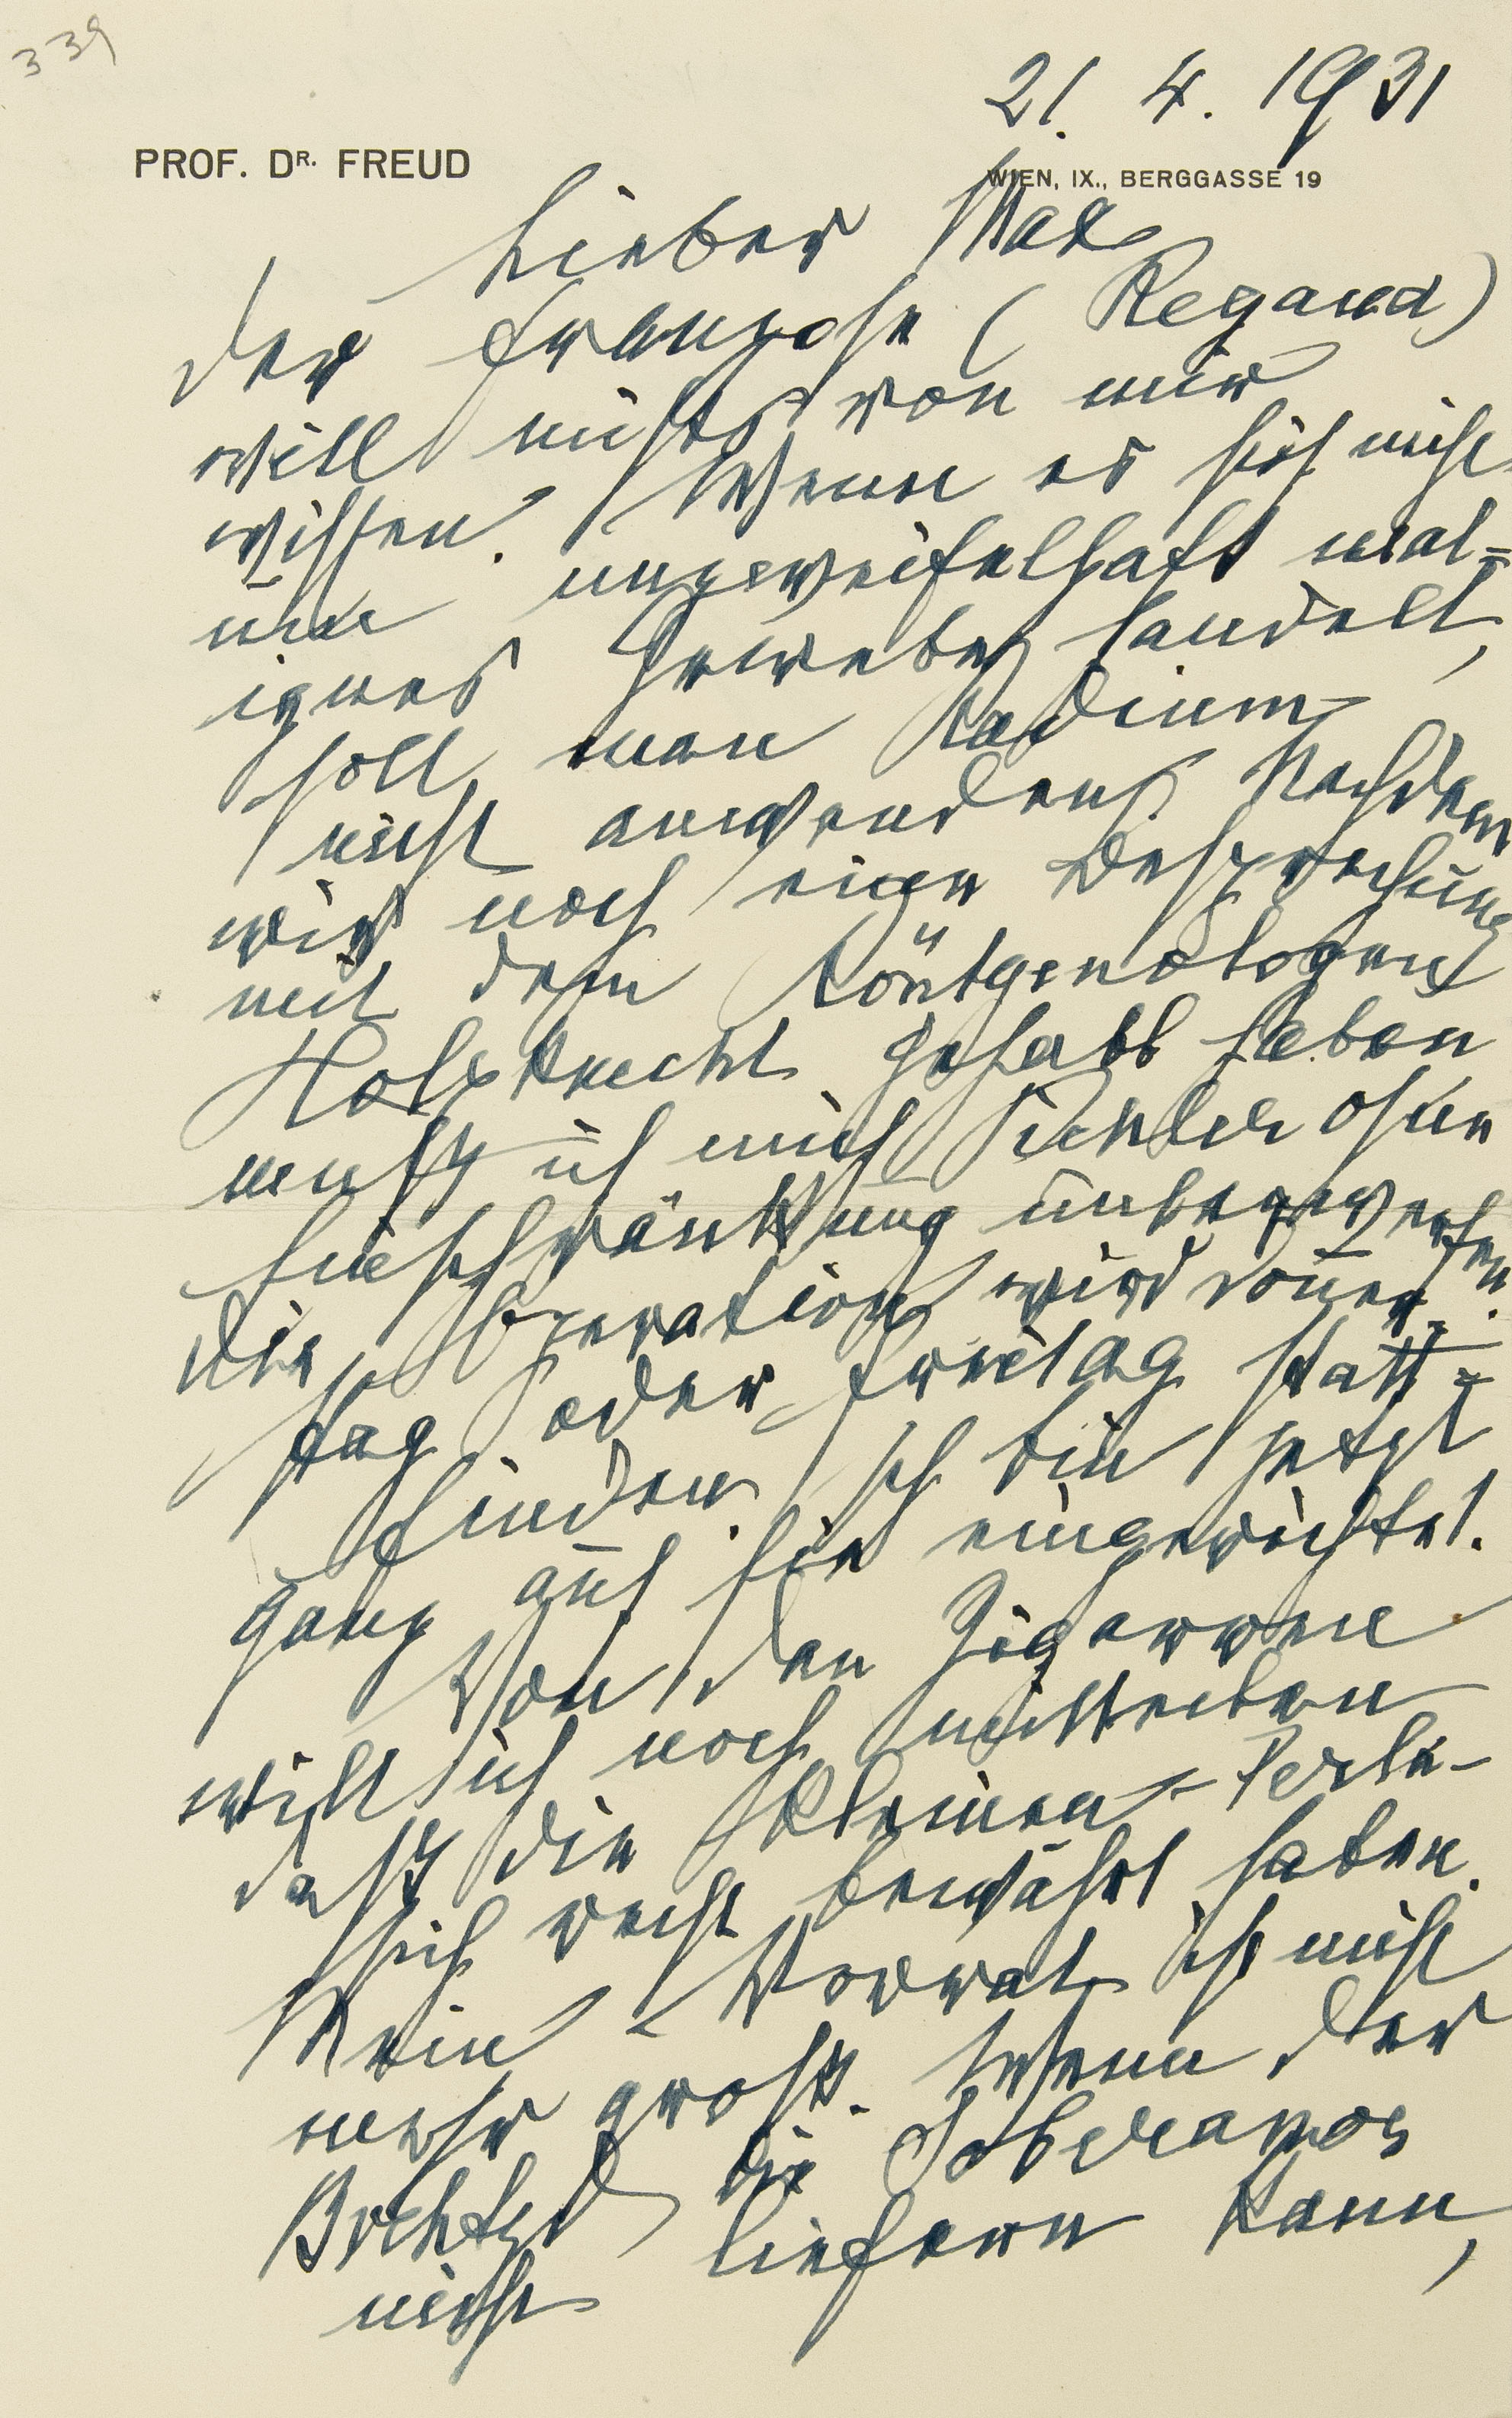 339
21. 4. 1931
PROF. DR. FREUD
WIEN, IX., BERGGASSE 19
Lieber Max
Der Franzose (Regaud)
will nichts von mir
wissen. Wenn es sich nicht
um unzweifelhaft mal=
ignes Gewebe handelt,
soll man Radium
nicht anwenden. Nachdem
wir noch eine Besprechung
mit dem Röntgenologen
Holzknecht gehabt haben
muß ich mich Pichler ohne
Einschränkung unterwerfen.
Die Operation wird Donners=
tag oder Freitag statt=
finden. Ich bin jetzt
ganz auf sie eingerichtet.
Von den Zigarren
will ich noch mitteilen
daß die kleinen Perla-
sich recht bewährt haben.
Mein Vorrat ist nicht
mehr groß. Wenn der
die Soberanos
nicht liefern kann,